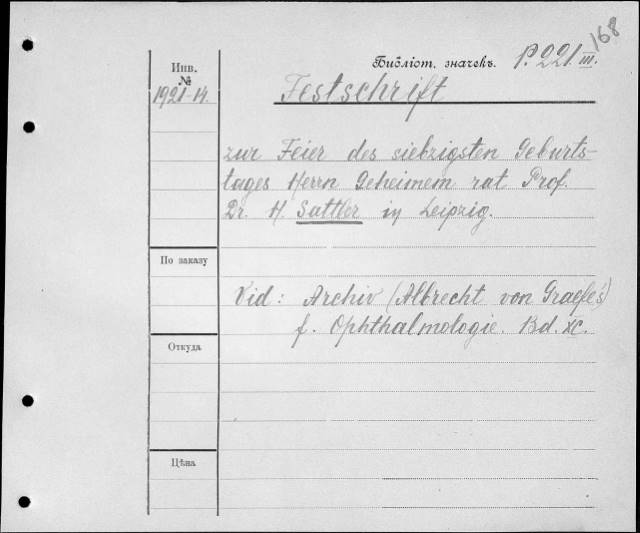 168
Библіот. значекъ. P.221.III.
Инв.
№
1921-14.
Festschrift
zur Feier des siebzigsten Geburts-
tages Herrn Geheimem rat Prof.
Dr. H. Sattler in Leipzig.
По заказу
Vid: Archiv (Albrecht von Graefe's)
f. Ophthalmologie. Bd. XC.
Откуда
Цѣна